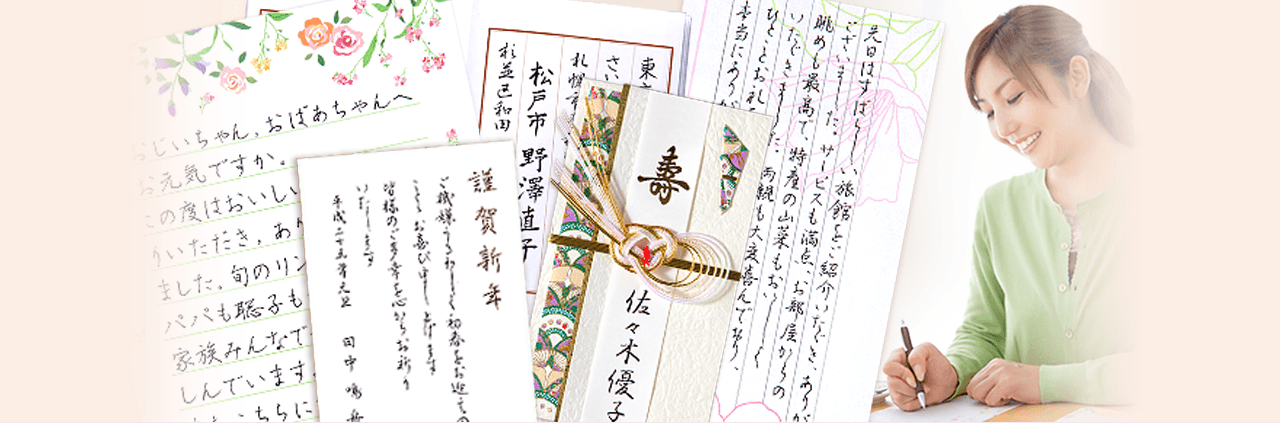 おじいちゃん、おばあちゃんへ
お元気ですか。
この度はおいしい
いただき、あり
ました。旬のリン
パパも聡子も
家族みんなで
しんでいます。
こちらに
謹賀新年
ご機嫌うるわしく初春をお迎えの
こととお喜び申し上げます
皆様のご多幸を心からお祈り
いたします
平成二十五年元旦
田中
東
さい
札幌市
松戸市 野澤直子
杉並区和田
寿
佐々木優子
先日はすばらしい旅館をご紹介いただき、ありが
ございました。サービスも満点、お部屋からの
眺めも最高で、特産の山菜もおいしく
いただきました。両親も大変喜んでおり、
ひとことお礼
本当にあり